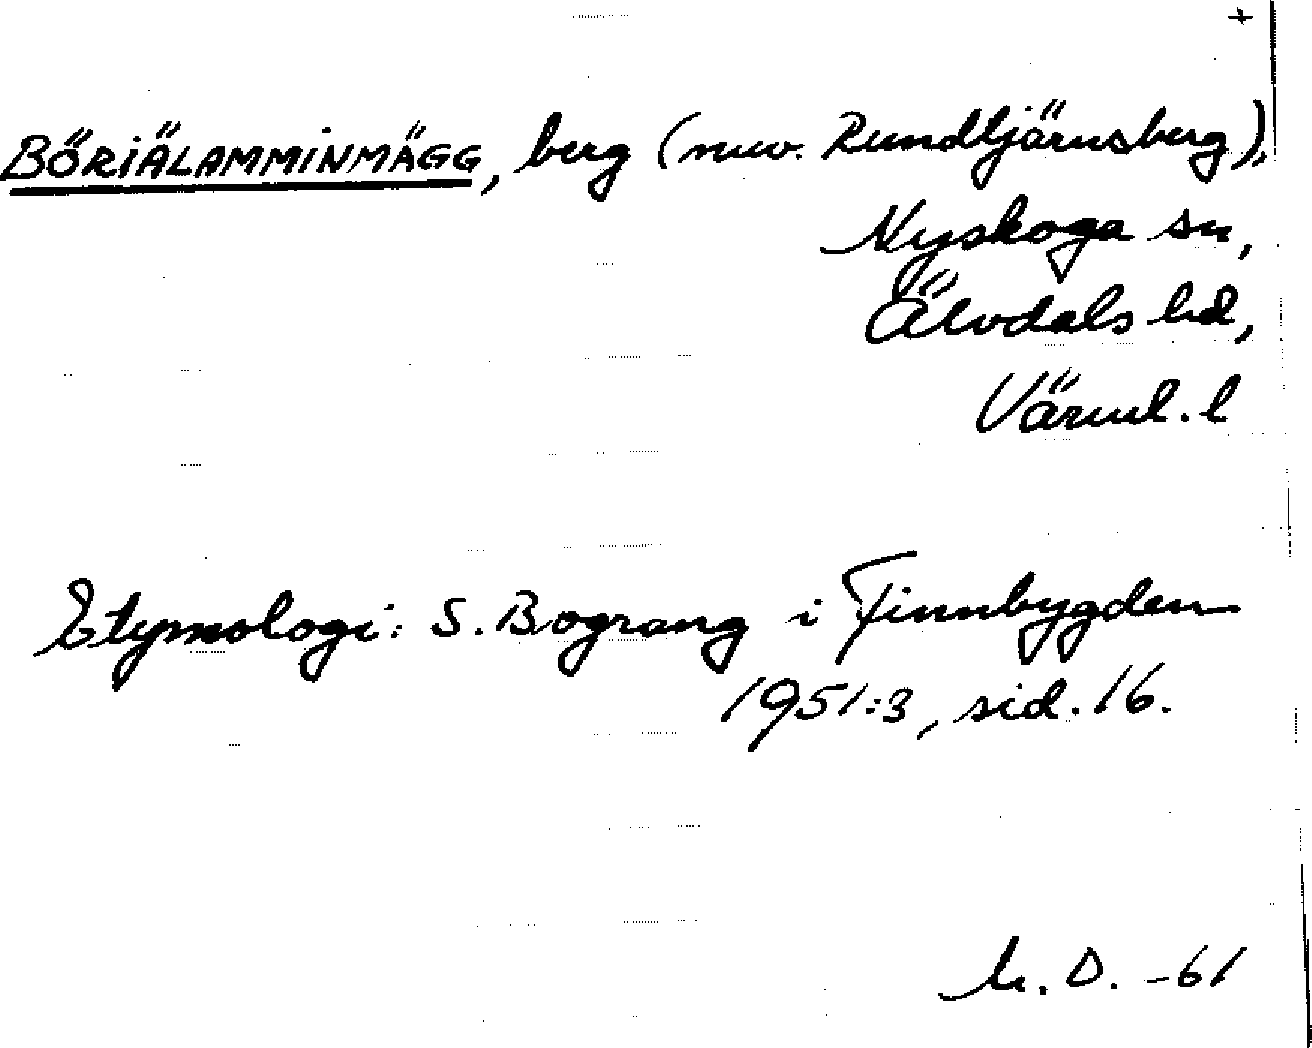 +
BÖRIÄLAMMINMÄGG, berg (nuv. Rundtjärnsberg),
Nyskoga sn,
Älvdals hd,
Värml. l
Etymologi: S. Bograng i Finnbygden
1951:3, sid. 16.
D. -61